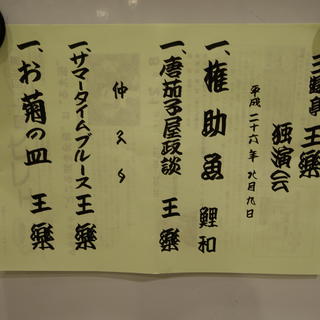 三遊亭 王樂
独演会
平成二十六年 九月九日
一、権助魚 鯉和
一、唐茄子屋政談 王樂
仲入り
一、サマータイムブルース 王樂
一、お菊の皿 王樂